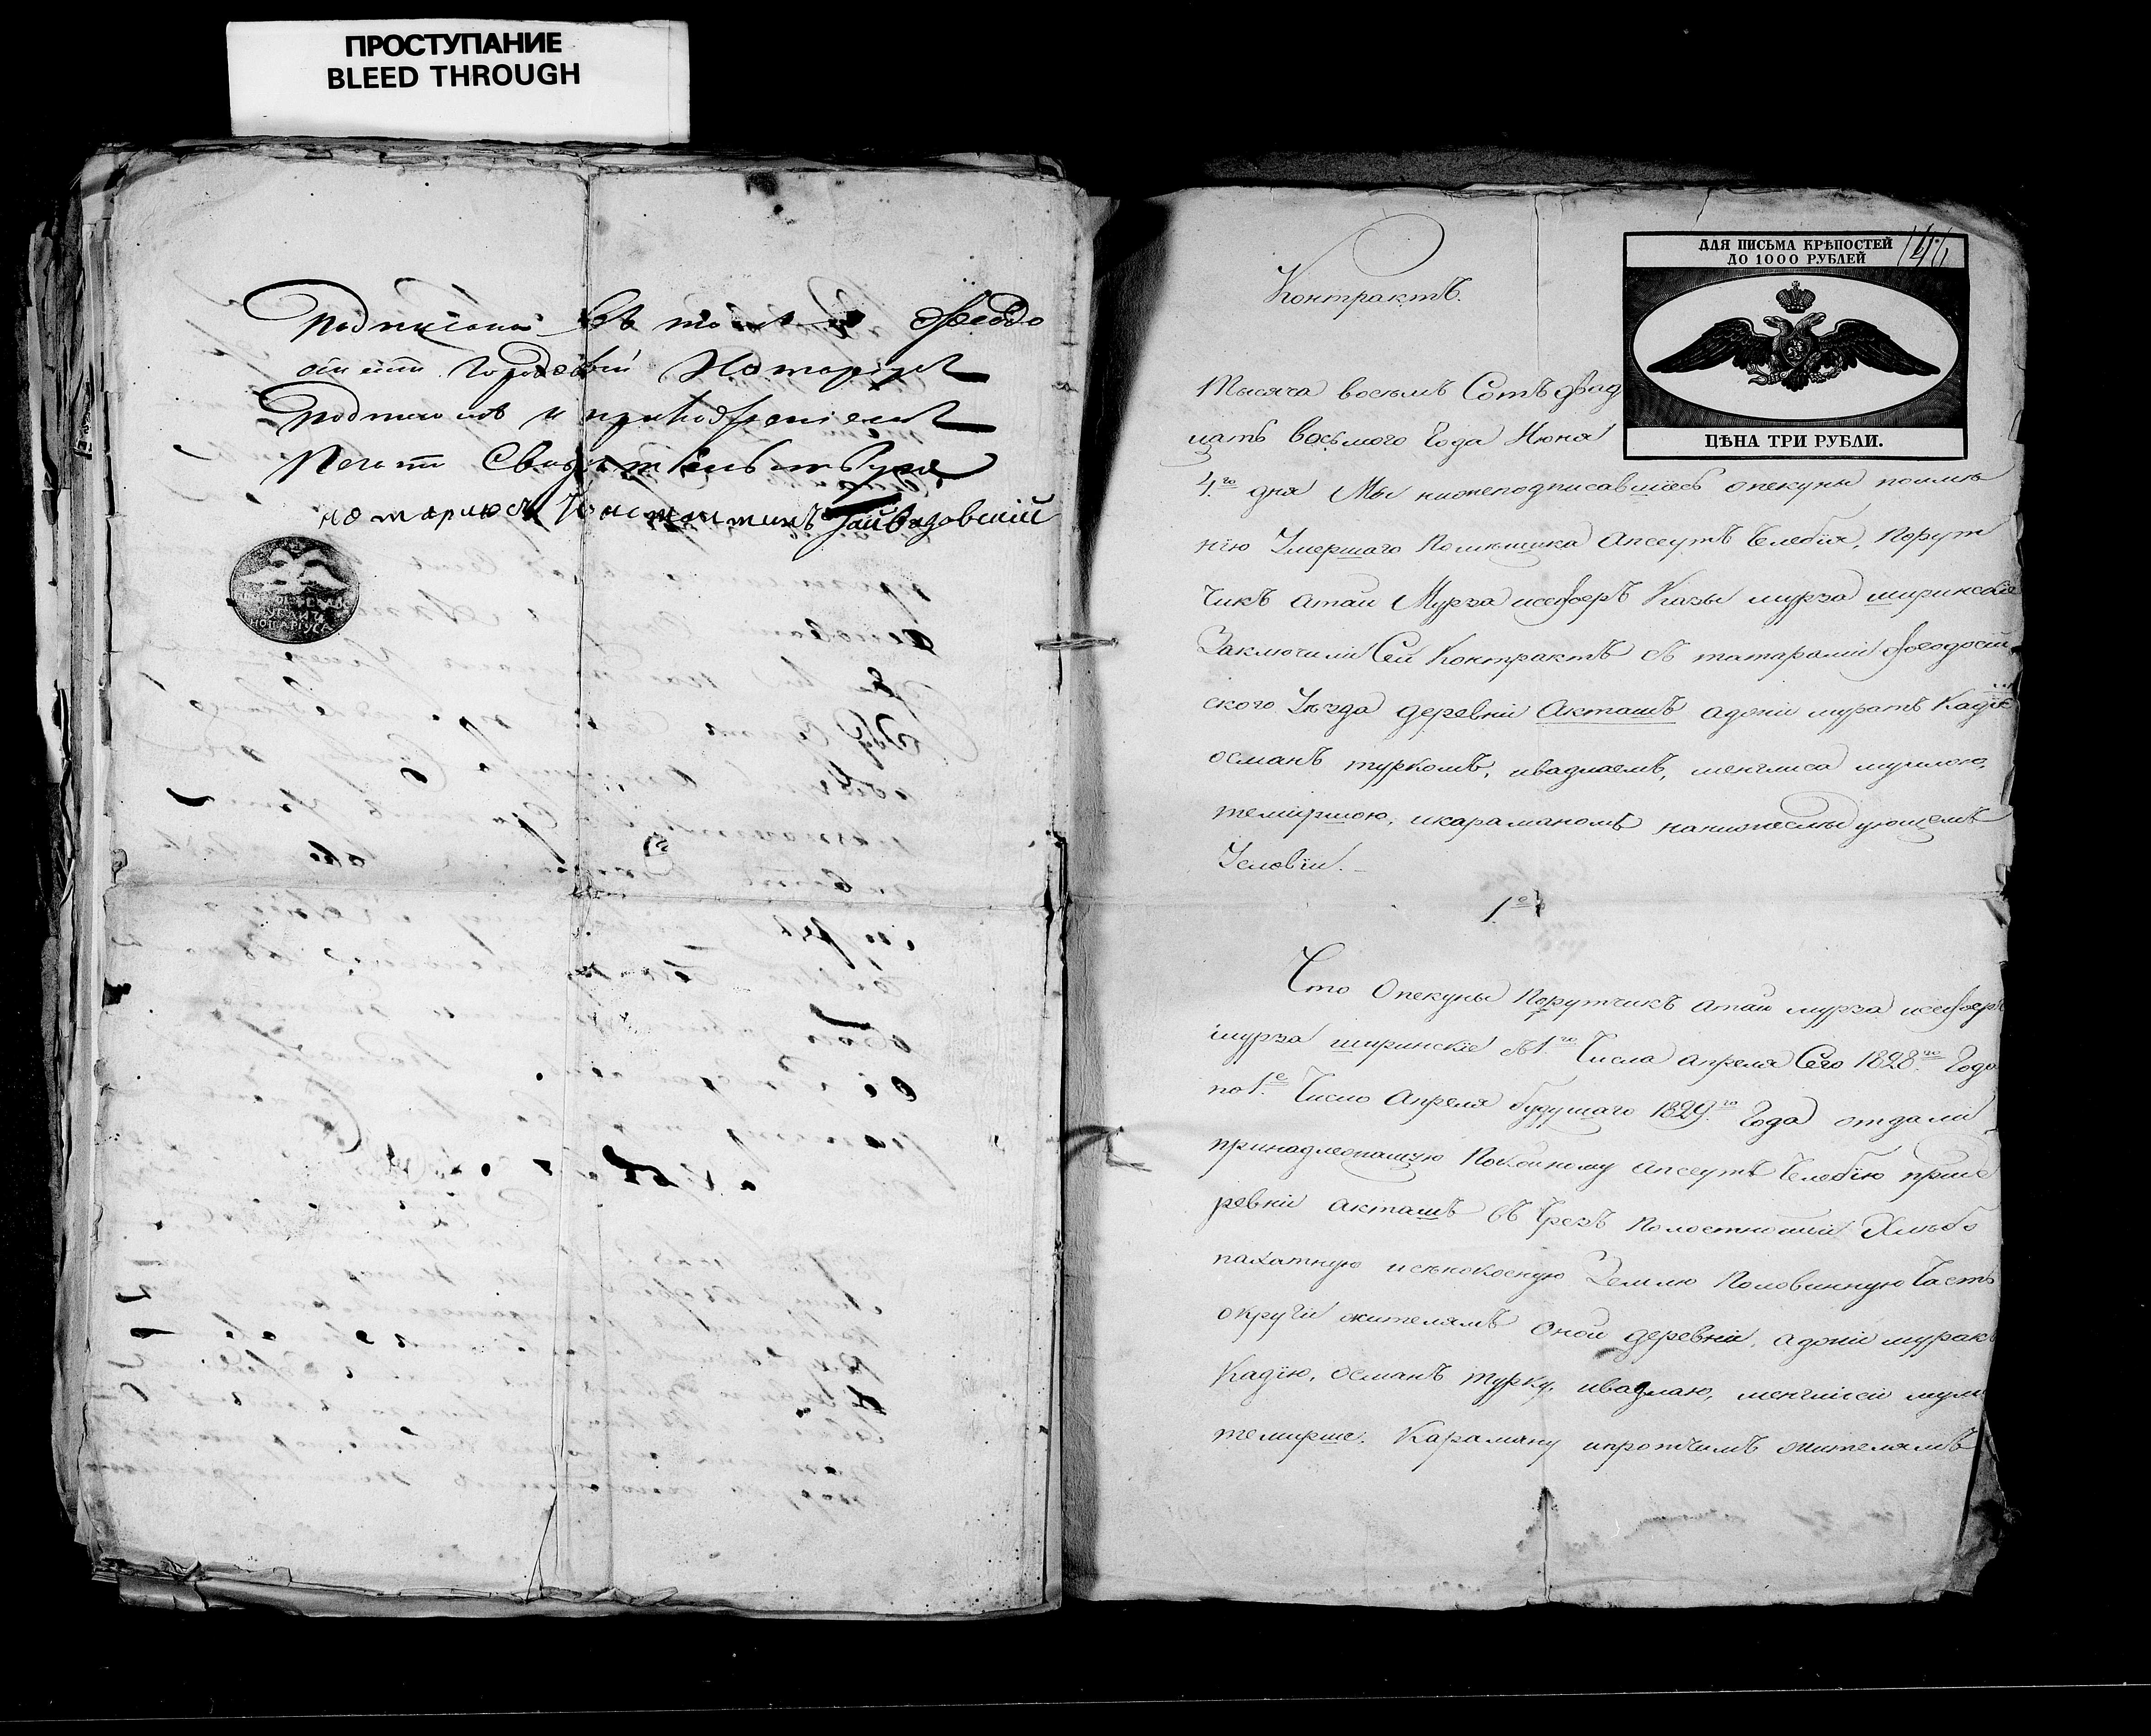 ПРОСТУПАНИЕ
BLEED THROUGH
въ томъ Феодо
Городовый Нотариус
и приложениемъ
Печати Свидетельствую
нотариусъ Константинъ Гайвазовский
НОТАРІУСА
146
ДЛЯ ПИСЬМА КРѢПОСТЕЙ
ДО 1000 РУБЛЕЙ
ЦѢНА ТРИ РУБЛИ.
Контрактъ.
Тысяча восемь Сотъ двад
цать восьмого Года Июня
4.го дня Мы нижеподписавшіесь опекуны поимѣ
нію Умершаго Помѣщика Апсеутъ Челебія, Порут
чикъ атай Мурза исефферъ Казы мурза ширинскіе
Заключили Сей Контрактъ съ татарами феодосій
ского Уѣзда деревни Акташъ аджи муратъ Кадіе
османъ туркомъ, менглиса муллою,
темиршою, икараманомъ нанижеслѣдующемъ
Условіи.
1.е
Что Опекуны Порутчикъ атай мурза исефферъ
мурза ширинскіе съ 1.го Числа апреля Сего 1828.го Года
по 1.е Число Апреля будущаго 1829.го Года отдали
принадлежащую Покойному апсеутъ Челебію приде
ревни акташъ въ Чрезъ Полостношій Хлѣбо
пахатную исѣнокосную Землю Половинную Часть
округи жителямъ Оной деревни, аджи мурат
Кадію, Османъ турку, менглисе мулл
темирше, Караману ипротчимъ жителямъ